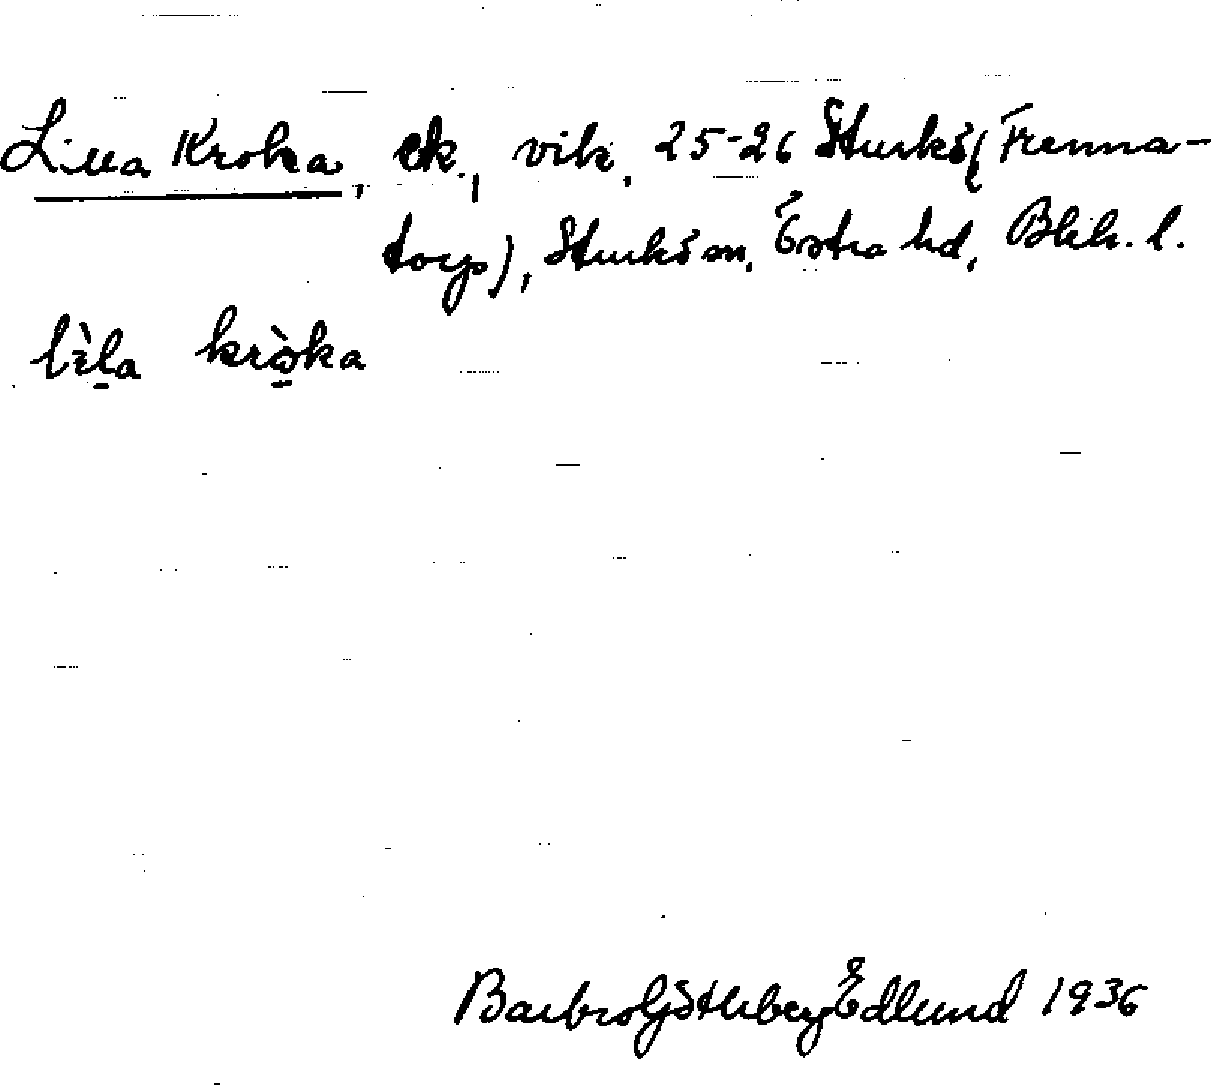 Lilla Kroka, ek., vik, 25-26 Sturkö (Frenna-
torp), Sturkö sn, Östra hd, Blek. l.
lìla kròka
Barbro Götleberg Edlund 1936